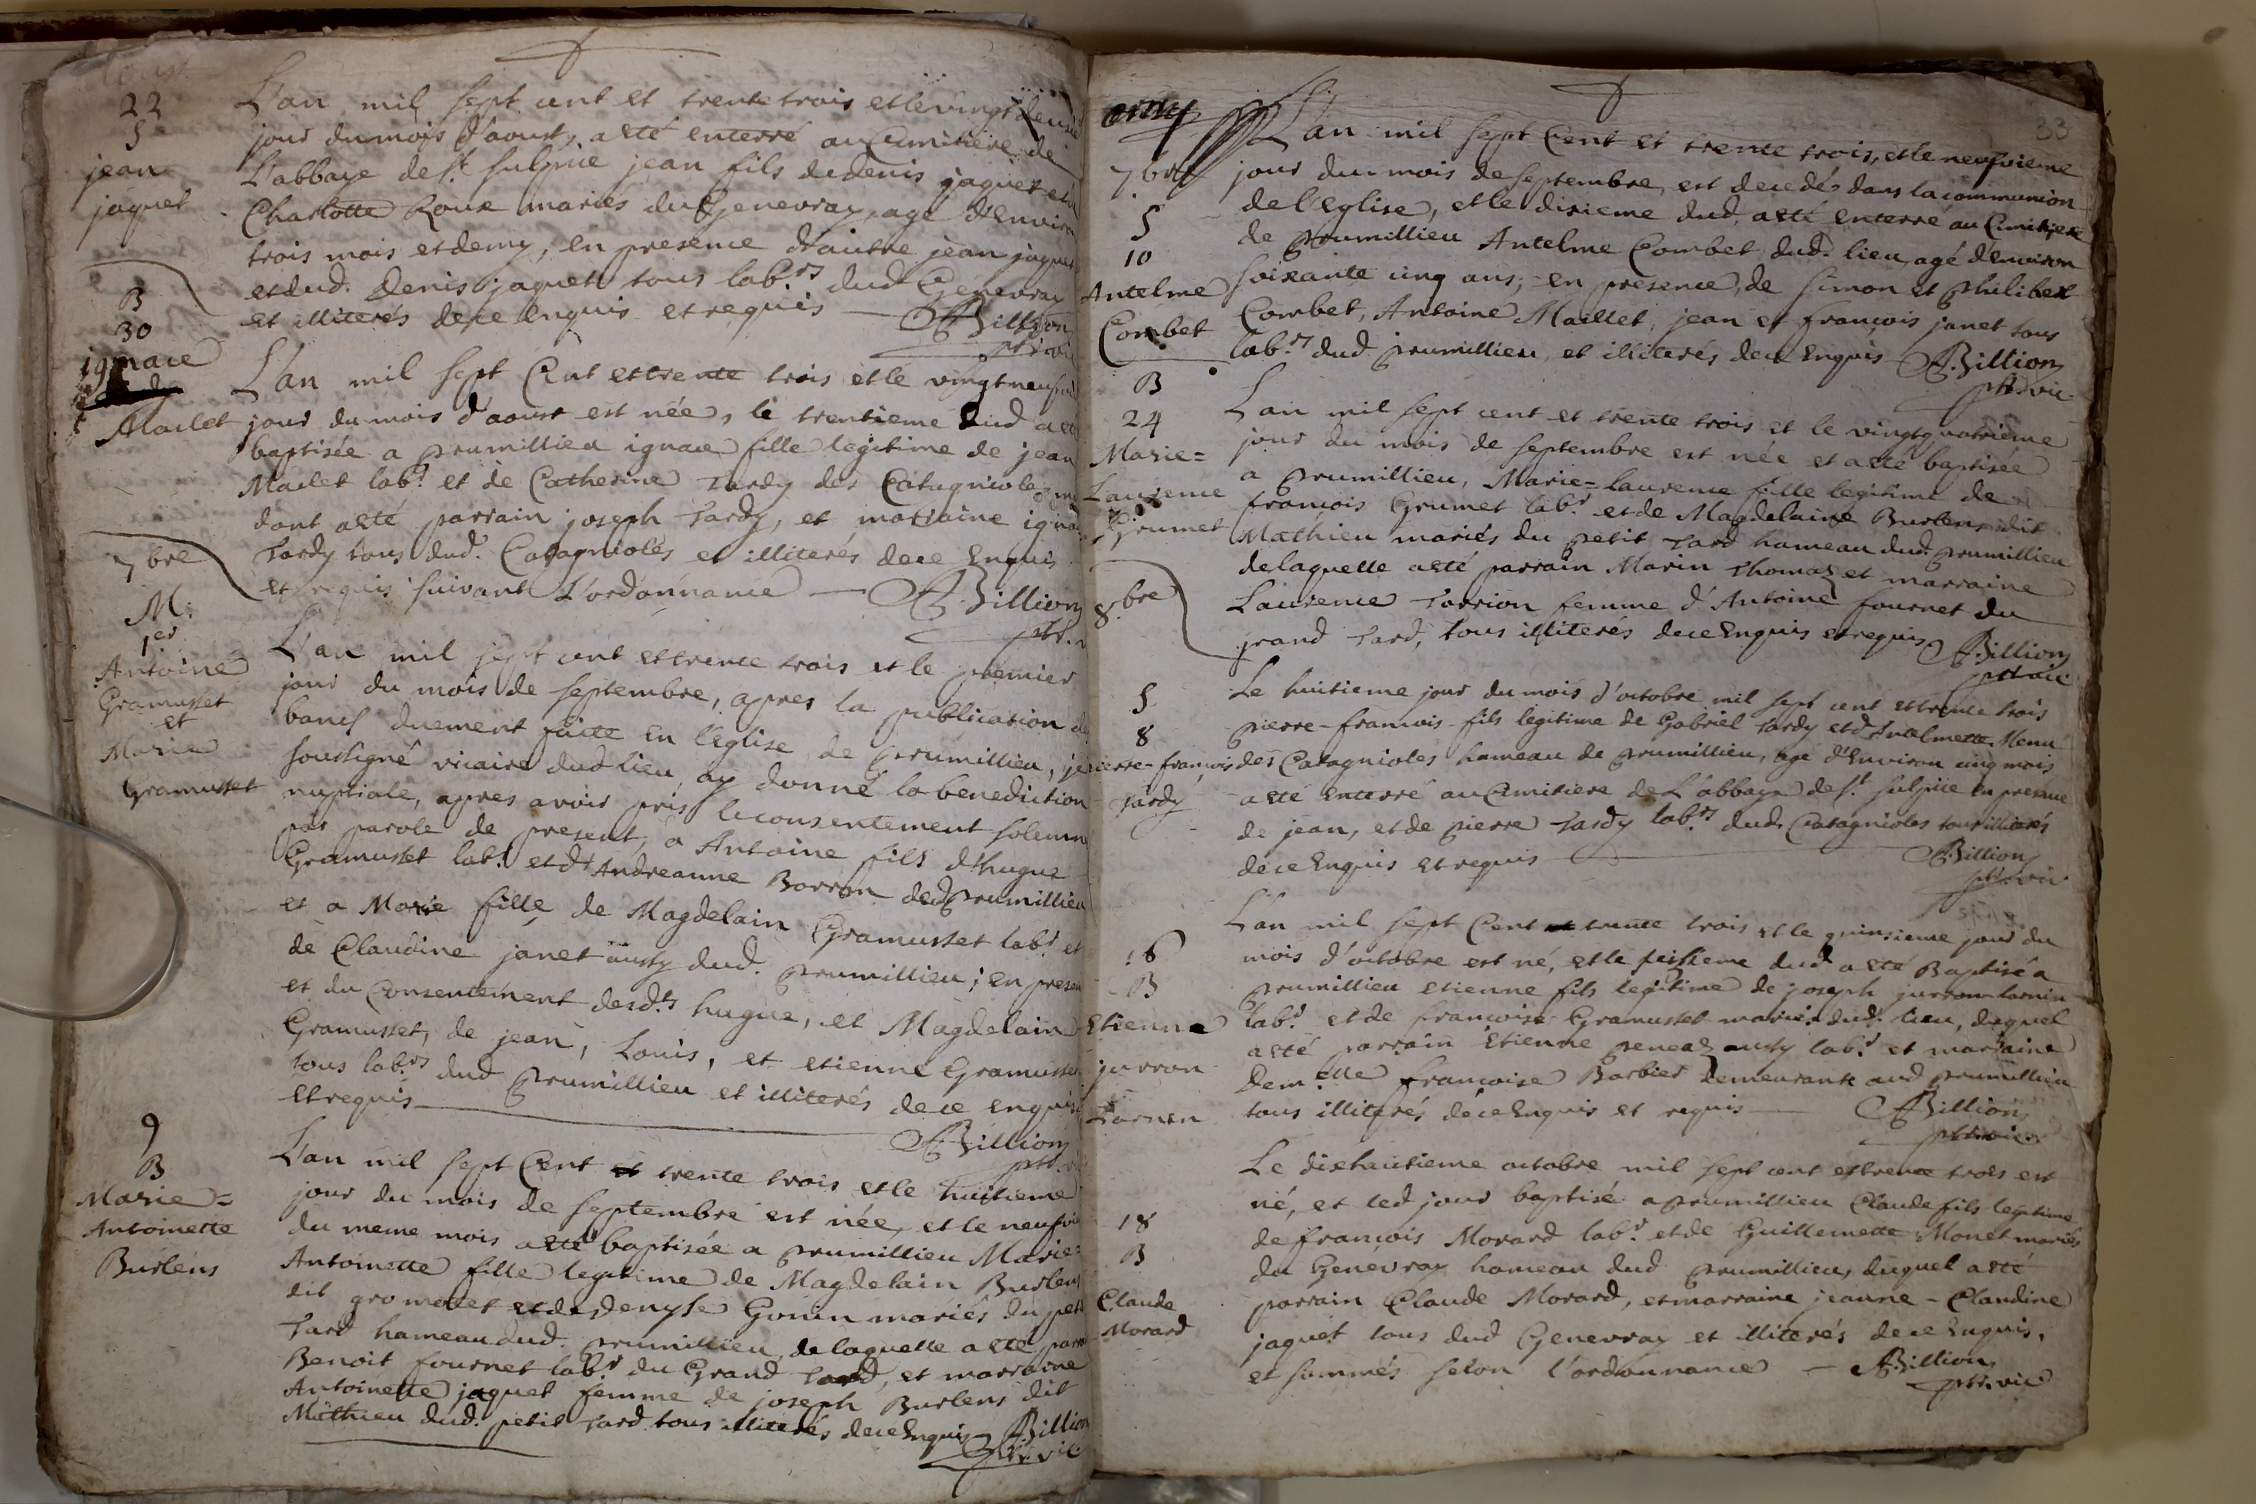 22
S
jean
jaquet
L'an mil sept cent et trente trois et le vingt deusie
jour du mois d'aoust, a esté enterré au Cimitiere de
L'abbaye de St. sulpice jean fils de denis jaquet et
Charlotte Roux mariés du Genevray, agé d'Environ
trois mois et demy, en presence d'autre jean jaquet
et dud. Denis jaquet tous lab.rs dud Genevray
et illiterés de ce Enquis et requis — Billion
ptr. vic
B
30
ignace
Maclet
L'an mil sept Cent et trente trois et le vingt neufvi
jour du mois d'aoust est née, le trentieme dud a esté
baptisée a prumillieu ignace fille legitime de jean
Maclet lab.r et de Catherine Tardy des Catagnioles
dont a esté parrain joseph Tardy, et marraine igna
Tardy tous dud. Catagnioles et illiterés de ce Enquis
et requis suivant L'ordonnance — Billion
ptr. v
7bre
M.
1er
Antoine
Gramusset
et
Marie
Gramusset
L'an mil sept cent et trente trois et le premier
jour du mois de septembre, apres la publication de
bancs duement faite En l'Eglise de prumillieu, je
soussigné vicaire dud lieu ay donné la benediction
nuptiale, apres avoir pris le consentement solemn
par parole de present, a Antoine fils d'hugue
Gramusset lab.r et d'Andreanne Borron ded prumillieu
et a Marie fille de Magdelain Gramusset lab.r et
de Claudine janet aussy dud. prumillieu; en presen
et du Consentement desd.ts hugue, et Magdelain
Gramusset, de jean, Louis, et etienne Gramusset
tous lab.rs dud prumillieu et illiterés de ce enquis
et requis — Billion
ptr.
9
B
Marie=
Antoinette
Burlens
L'an mil sept Cent et trente trois et le huitieme
jour du mois de septembre est née, et le neufvie
du meme mois a esté baptisée a prumillieu Marie=
Antoinette fille legitime de Magdelain Burlens
dit gromolet et de denyse Gonin mariés du petit
Tard hameau dud. prumillieu, de laquelle a esté parr
Benoit fournet lab.r du Grand Tard, et marraine
Antoinette jaquet femme de joseph Burlens dit
Mathieu dud. petit Tard tous illiterés de ce Enquis Billion
ptr. vic
33
7bre
S
10
Antelme
Combet
L'an mil sept Cent et trente trois, et le neufvieme
jour du mois de septembre, est decedés dans la communion
de l'Eglise, et le disieme dud. a esté enterré au Cimitiere
de prumillieu Antelme Combet dud. lieu, agé d'Environ
soixante cinq ans, en presence, de simon et philibert
Combet, Antoine Maillet, jean et françois janet tous
lab.rs dud prumillieu, et illiterés de ce Enquis Billion
ptr. vic
B
24
Marie=
Laurence
Grumet
L'an mil sept cent et trente trois et le vingtquatrieme
jour du mois de septembre est née et a esté baptisée
a prumillieu, Marie=laurence fille legitime de
françois Grumet lab.r et de Magdelaine Burlens dit
Mathieu mariés du petit Tard hameau dud. prumillieu
de laquelle a esté parrain Marin Thomas et marraine
Laurence Tarrion femme d'Antoine fournet du
grand Tard, tous illiterés de ce Enquis et requis Billion
ptr. vic
8.bre
S
8
pierre-françois
Tardy
Le huitieme jour du mois d'octobre mil sept cent et trente trois
pierre-françois fils legitime de Gabriel Tardy et d'Antelmette Menu
des Catagnioles hameau de prumillieu, agé d'Environ cinq mois
a esté enterré au Cimitiere de L'abbaye de St. sulpice en presence
de jean, et de pierre Tardy lab.rs dud. Catagnioles tous illiterés
de ce Enquis et requis — Billion
ptr. vic
16
B
Etienne
jurron
Tarnin
L'an mil sept Cent et trente trois et le quinsieme jour du
mois d'octobre est né, et le seisieme dud a esté Baptisé a
prumillieu etienne fils legitime de joseph jurron-tarnin
lab.r et de françoise Gramusset mariés dud. lieu, duquel
a esté parrain Etienne aussy lab.r et marraine
Dem.elle françoise Barbier demeurante aud prumillieu
tous illiterés de ce Enquis et requis — Billion
ptr. vic
18
B
Claude
Morard
Le dixhuitieme octobre mil sept cent et trente trois est
né, et led jour baptisé a prumillieu Claude fils legitime
de françois Morard lab.r et de Guillemette Monet mariés
du Genevray hameau dud prumillieu, duquel a esté
parrain Claude Morard, et marraine jeanne-Claudine
jaquet tous dud Genevray et illiterés de ce Enquis,
et sommés selon l'ordonnance — Billion
ptr. vic